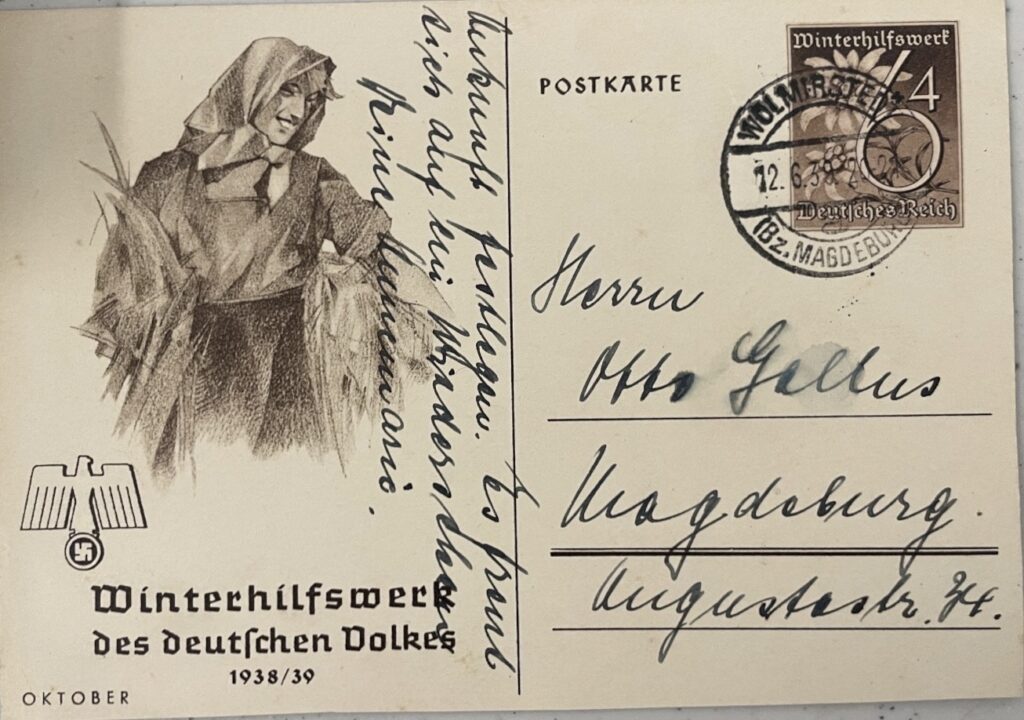 POSTKARTE
Winterhilfswerk
6+4
Deutsches Reich
WOLMIRSTEDT
12.6.39. 20-21
(Bz. MAGDEBURG
Ankunft festlegen. Es freut
sich auf ein Wiedersehen
Deine Annemarie.
Herrn
Otto Gallus
Magdeburg.
Augustastr. 34.
Winterhilfswerk
des deutſchen Volkes
1938/39
OKTOBER